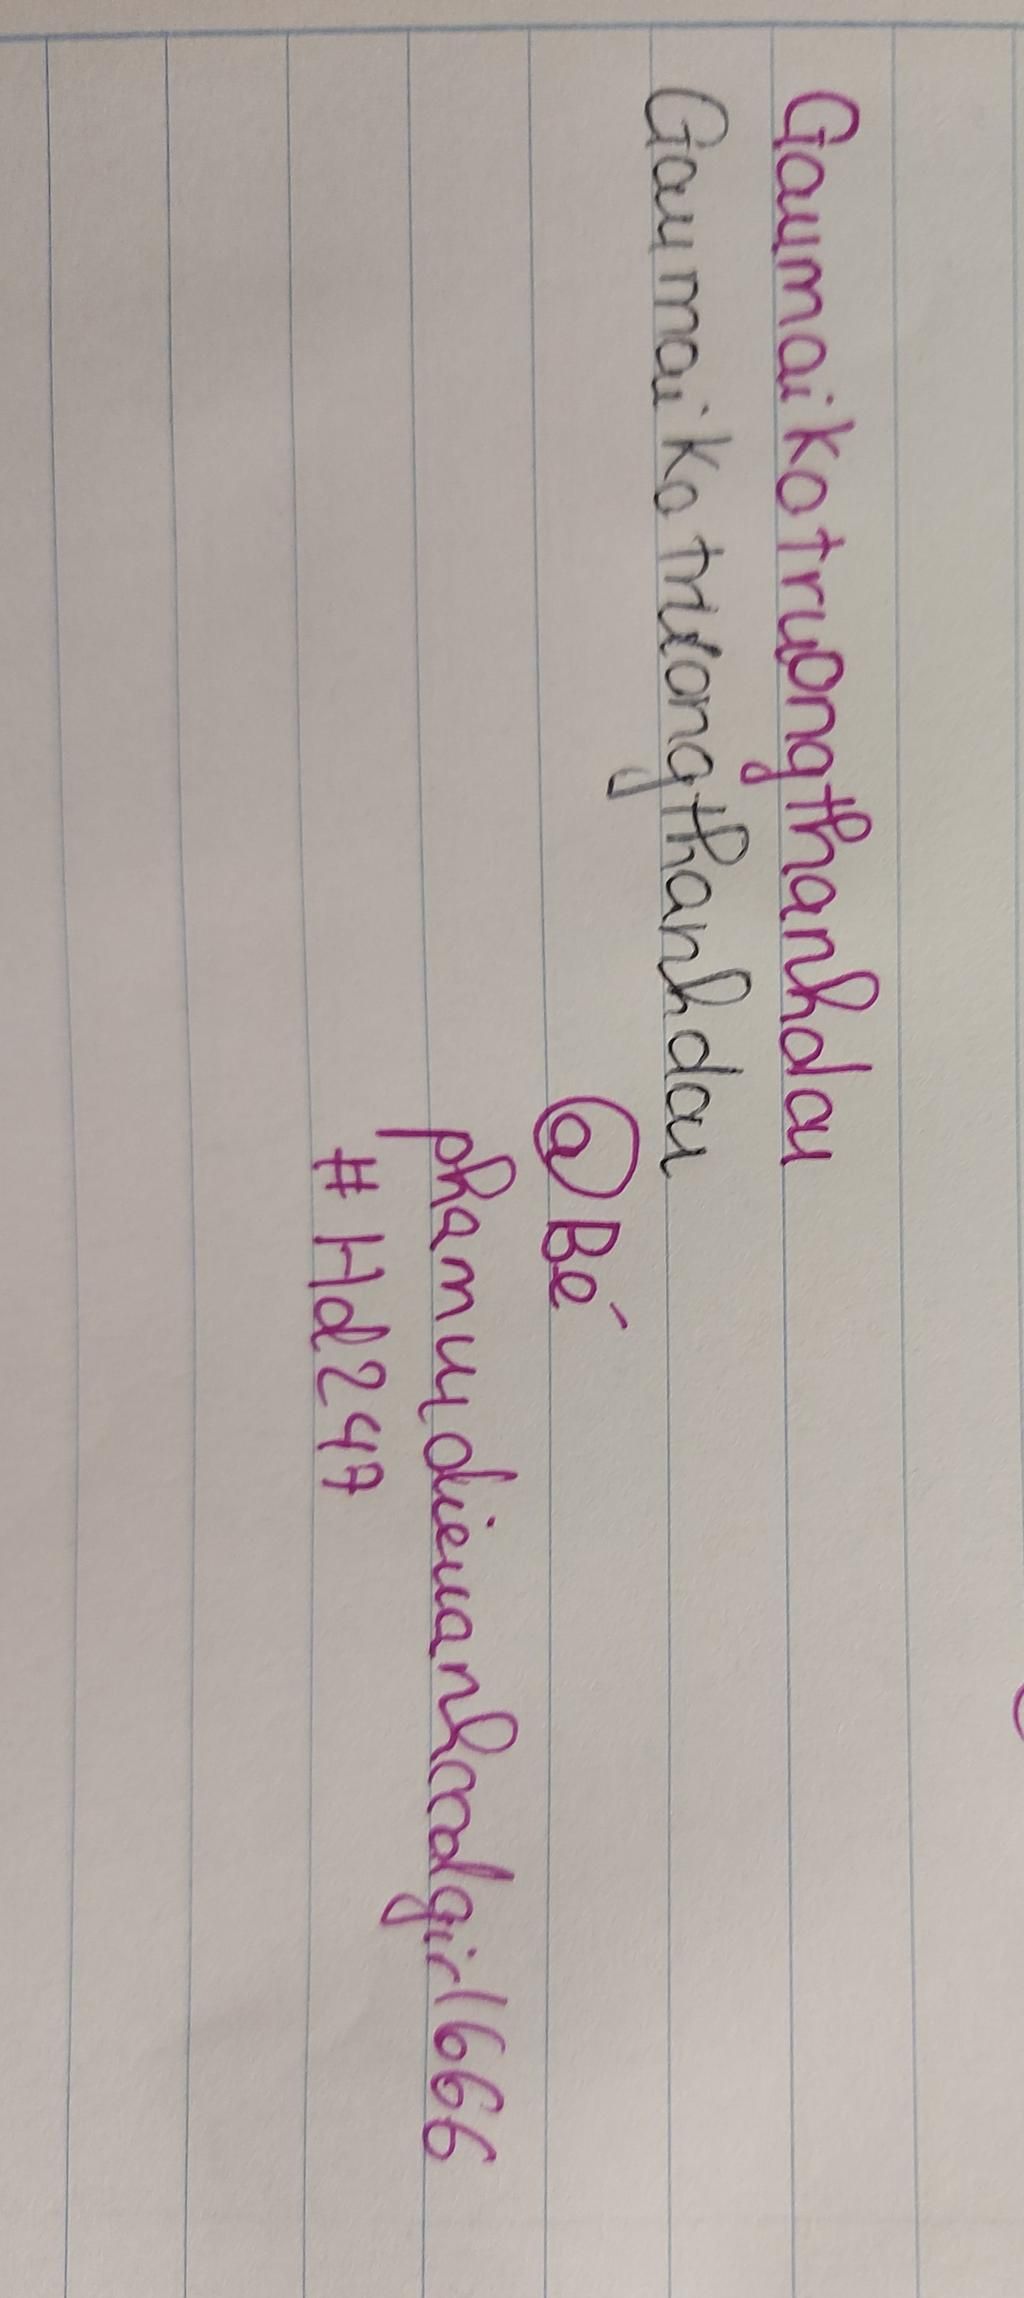 Gaumaikotruongthanhdau
Gaumaikotruongthanhdau
@Bé
phamuudieuanhcodgirl666
#Hd247